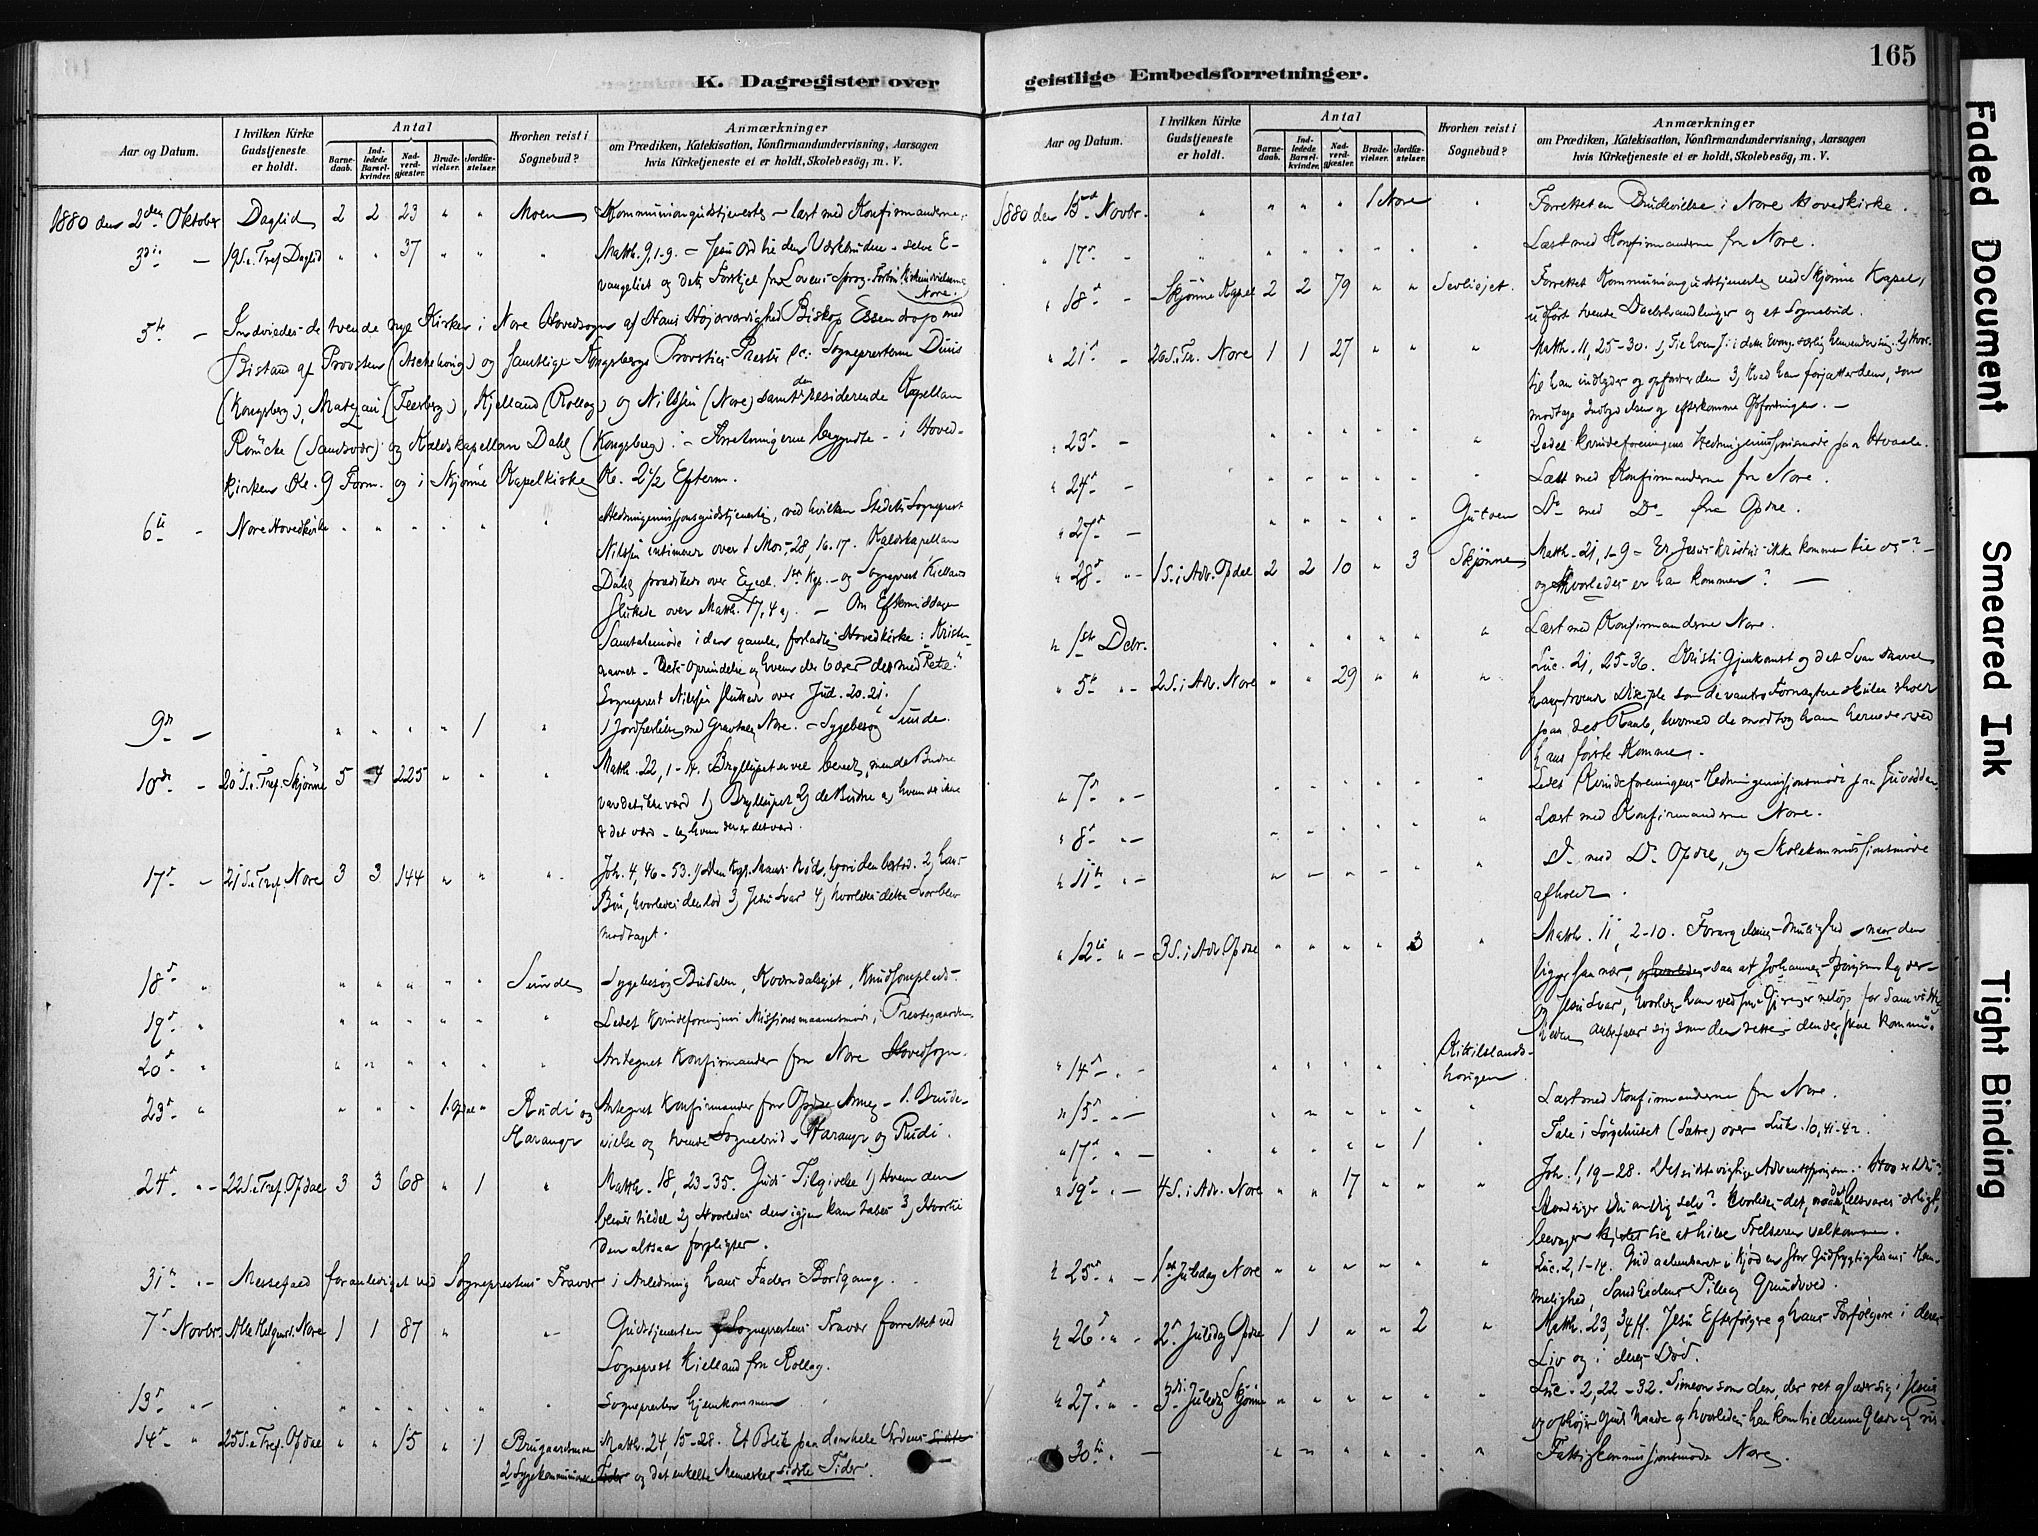 165
K. Dagregister over
geistlige Embedsforretninger.
Aar og Datum.
I hvilken Kirke Gudstjeneste er holdt.
Antal
Barnedaab.
Indledede Barselkvinder.
Nadverdgjæster.
Brudevielser.
Jordfæstelser.
Hvorhen reist i Sognebud?
Anmærkninger
om Prædiken, Katekisation, Konfirmandundervisning, Aarsagen
hvis Kirketjeneste ei er holdt, Skolebesög, m. V.
1880 den 2den Oktober Daglid 2 2 23 " " Moen Kommuniongudstjeneste - læst med Konfirmanderne.
3die — 19 S. e. Tref. Daglid " " 37 " " " Matth. 9, 1-9. - Jesu Ord til den Værkbrudne - selve E-
vangeliet og dets Forskjel fra Lovens Sprog.
Nore.
5te — Indviedes de tvende nye Kirker i Nore Hovedsogn af Hans Højærværdighed Biskop Essendrop med
Bistand af Provsten (Aschehoug) og samtlige Kongsbergs Provsties Præster &c: Sognepresterne Duus
(Kongsberg), Matzau (Flesberg), Kjelland (Rollag) og Nilssen (Nore) samt den residerende Kapellan
(Sandsvær) og Kaldskapellan Dahl (Kongsberg). - Forretningerne begyndte - i Hoved-
kirken Kl. 9 Form. og i Skjønne Kapelkirke Kl. 2 1/2 Efterm.
6te — Nore Hovedkirke " " " " " " Hedningemissionsgudstjeneste, ved hvilken Stedets Sogneprest
Nilssen intimerede over 1 Mos. 28, 16.17. Kaldskapellan
Dahl prædikede over - og Sogneprest Kielland
sluttede over Matth. 17, 4. - Om Eftermiddagen
Samtalemøde i den gamle, forladte Hovedkirke: Kristen
navnet - dets Oprindelse og hvem der bærer det med Rette."
Sogneprest Nilssen sluttede over Jud. 20. 21.
9de — " " " " 1 " 1 Jordfæstelse med Gravtale Nore. - Sygebesøg Sunde.
10de — 20 S. e. Tref. Skjønne 5 4 225 " " " Matth. 22, 1-14. Brylluppet er vel beredt, men de Budne
var det ikke værd 1) Brylluppet 2) de Budne og hvem der ikke
er det værd - og hvem der er det værd.
17de — 21 S. e. Tref. Nore 3 3 144 " " " Joh. 4, 46-53. 1) Den kgl. Mands Nød, hvori den bestod. 2) Hans
Bøn, hvorledes den lød 3) Jesu Svar 4) hvorledes dette Svar blev
modtaget.
18de " " " " " " Sunde Sygebesøg Budalen, Knudsonplads-
19de " " " " " " " Ledet Kvindeforeningens Missionsmaanedsmøde, Prestegaarden.
20de " " " " " " " Antegnet Konfirmander fra Nore Hovedsogn.
23de " " " " 1. Opdal " Rudi og Haranger Antegnet Konfirmander for Opdal Annex - 1. Brude-
vielse og tvende Sognebud - Haranger og Rudi.
24de " — 22 S. e. Tref. Opdal 3 3 68 " 1 " Matth. 18, 23-35. Guds Tilgivelse 1) Hvem den
bliver tildel 2) Hvorledes den igjen kan tabes 3) Hvortil
den altsaa forpligter.
31te " — Messefald foranlediget ved Sogneprestens Fravær i Anledning hans Faders Bortgang.
7de Novbr. Alle Helgens D. Nore 1 1 87 " " " Gudstjenesten Sogneprestens Fravær forrettet ved
Sogneprest Kielland fra Rollag.
13de " — " " " " " " " Sognepresten hjemkommen
14de " 25 S. e. Tref. Opdal " " 15 " 1 Brugaardsmoen Matth. 24, 15-28. Et Blik paa den hele Verdens
2 Sygekommunioner og det enkelte Menneskes sidste Tider.
Aar og Datum.
I hvilken Kirke Gudstjeneste er holdt.
Antal
Barnedaab.
Indledede Barselkvinder.
Nadverdgjæster.
Brudevielser.
Jordfæstelser.
Hvorhen reist i Sognebud?
Anmærkninger
om Prædiken, Katekisation, Konfirmandundervisning, Aarsagen
hvis Kirketjeneste ei er holdt, Skolebesög, m. V.
1880 den Novbr. " " " " 1 Nore " Forrettet en Brudevielse i Nore Hovedkirke.
" 17de — " " " " " " " Læst med Konfirmanderne fra Nore.
" 18de — Skjønne Kapel 2 2 79 " " Sevliejet. Forrettet Kommuniongudstjeneste ved Skjønne Kapel,
udført tvende Daabshandlinger og et Sognebud.
" 21de — 26 S. e. Tr. Nore 1 1 27 " " " Matth. 11, 25-30. 1) Til hvem J. i dette Evang. særlig henvender sig. 2) Hvor-
til han indbyder og opfordrer dem 3) Hvad han forjætter dem, som
modtage Indbydelsen og efterkomme Opfordringen. —
" 23de — " " " " " " Ledet Kvindeforeningens Hedningemissionsmøde paa Hvaale.
" 24de — " " " " " " Læst med Konfirmanderne fra Nore.
" 27de — " " " " " Gutuen Do med Do fra Opdal.
" 28de " — 1 S. i Adv. Opdal 2 2 10 " 3 Skjønne Matth. 21, 1-9 - Er Jesus Kristus ikke kommen til os? -
og hvorledes er han kommen? —
" 1ste Decbr. " " " " " " Læst med Konfirmanderne Nore.
" 5te " — 2 S. i Adv. Nore " " 29 " " " Luc. 21, 25-36. Kristi Gjenkomst og det Svar saavel
hans troende Disciple som de vantro Fornægtere skulle
paa det Raab, hvormed de modtog ham hernede ved
hans første Komme.
" 7de " — " " " " " " Ledet Kvindeforeningens Hedningemissionsmøde paa
" 8de " — " " " " " " Læst med Konfirmanderne Nore.
" 11te " — " " " " " " Do med Do Opdal, og Skolekommissionsmøde
afholdt.
" 12te " — 3 S. i Adv. Opdal " " " " 3 " Matth. 11, 2-10. Forargelsens Mulighed - naar den
ligger saa nær, saa at Johannes spørger
og Jesu Svar, hvorledes han ved sine Gjerninger netop for Samvittig-
heden anbefaler sig som den rette den der skulde komme.
" 14de " — " " " " " Kittilslands- haugen
" 15de " — " " " " " " Læst med Konfirmanderne fra Nore.
" 17de " — " " " " 1 " Tale i Sørgehuset (Sætre) over Luk. 10, 41-42.
" 19de " — 4 S. i Adv. Nore " " 17 " " " Joh. 1, 19-28. Det sidste vigtige Adventsspørgsm.: Hvo er Du?
Hvad siger Du om Dig selv? Hvorledes det, naar det besvares ærligt,
bevæger Hjertet til at hilse Frelseren velkommen.
" 25de " — 1ste Juledag Nore " " " " " " Luc. 2, 1-14. Gud aabenbaret i Kjød er stor Gudfrygtighedens Hem-
melighed, Sandhedens Pille og Grundvold.
" 26de " — 2den Juledag Opdal 1 1 " " 2 " Matth. 23, 34 ff. Jesu Efterfølgere og hans Forfølgere i deres
Liv og i deres Død.
" 27de " — 3die Juledag Skjønne " " " " " " Luc. 2, 22-32. Simeon som den, der ret glæder sig i Jesus
og ophøjer Guds Naade og hvorledes han kom til denne Glæde og Pris
" 30te — " " " " " " Fattigkommissionsmøde Nore.
Faded Document
Smeared Ink
Tight Binding